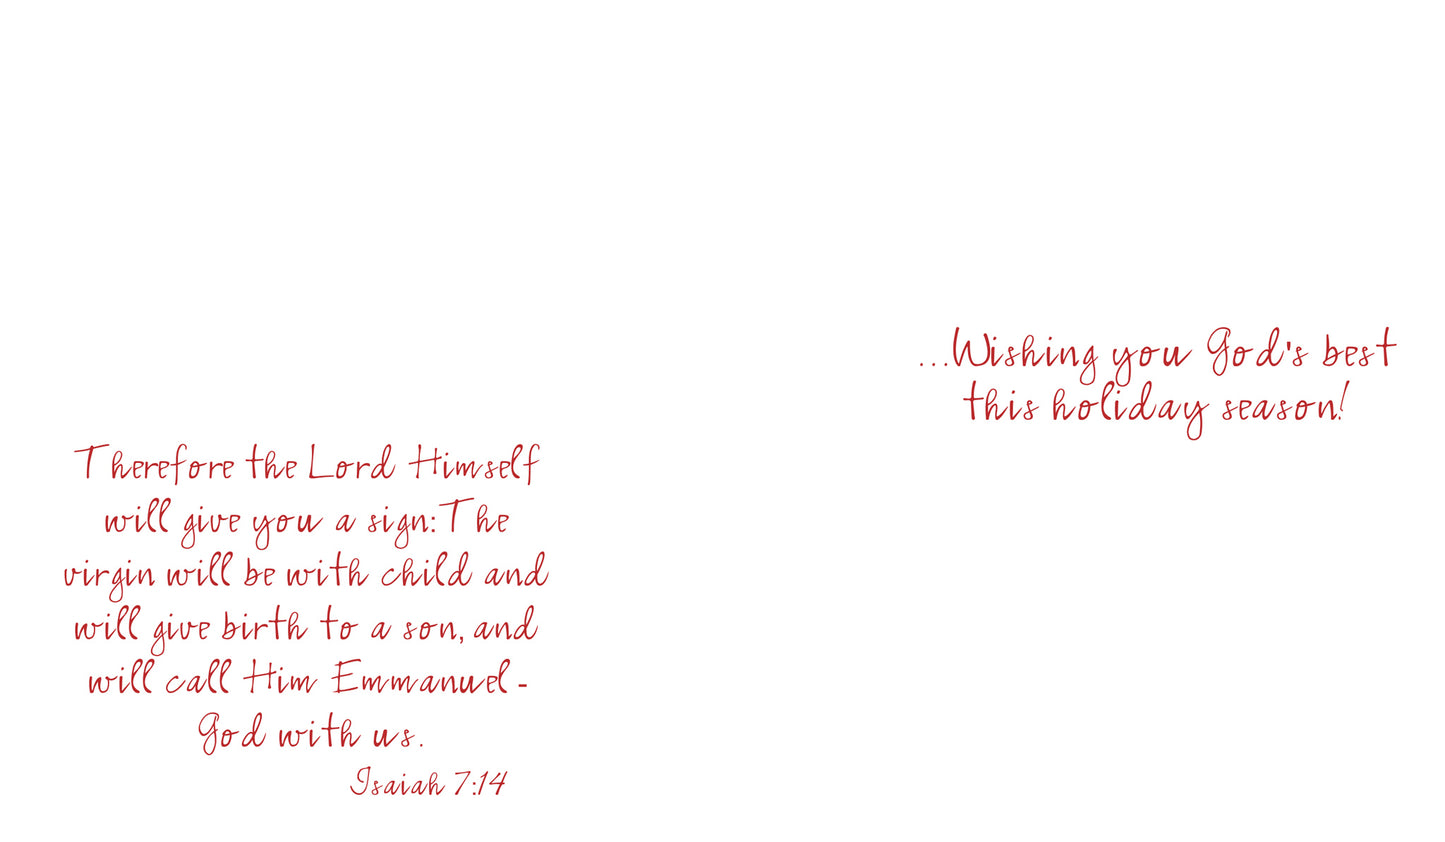 Therefore the Lord Himself
will give you a sign: The
virgin will be with child and
will give birth to a son, and
will call Him Emmanuel -
God with us.
Isaiah 7:14
...Wishing you God's best
this holiday season!